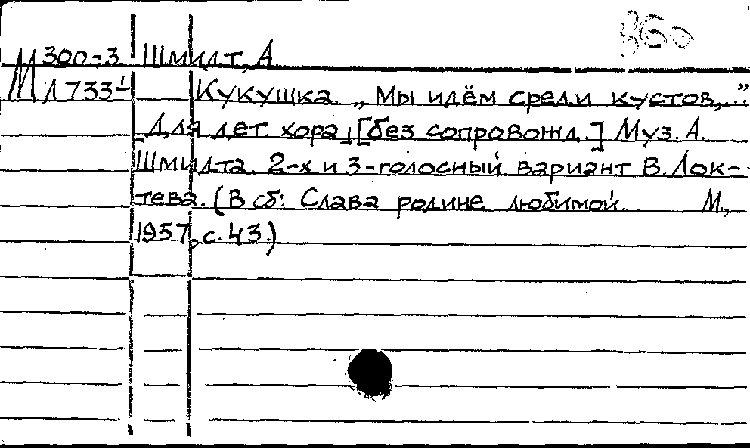 360
М 300-3 Шмидт, А
М Л 733-1 Кукушка. „Мы идём среди кустов,..."
„Для дет хора" [без сопровожд.] Муз. А.
Шмидта. 2-х и 3-голосный вариант В. Лок-
тева. (В сб: Слава родине любимой. М.,
1957, с. 43.)